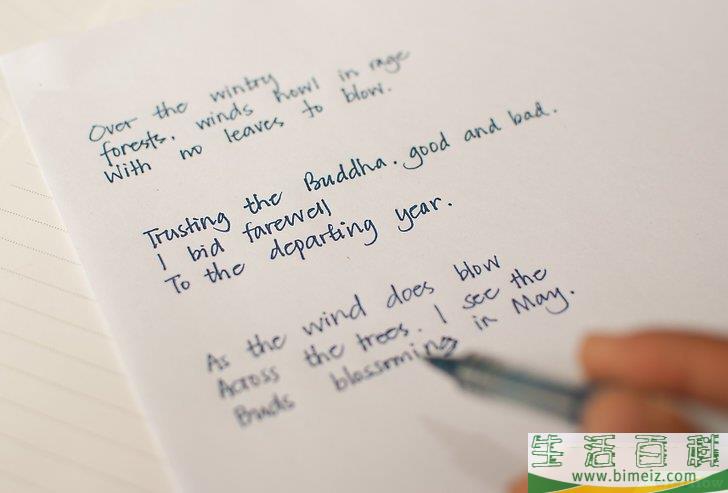 Over the wintry
forests. winds howl in rage
With no leaves to blow.
Trusting the Buddha. good and bad.
I bid farewell
To the departing year.
As the wind does blow
Across the trees. I see the
Buds blossoming in May.
生活百科
www.bimeiz.com